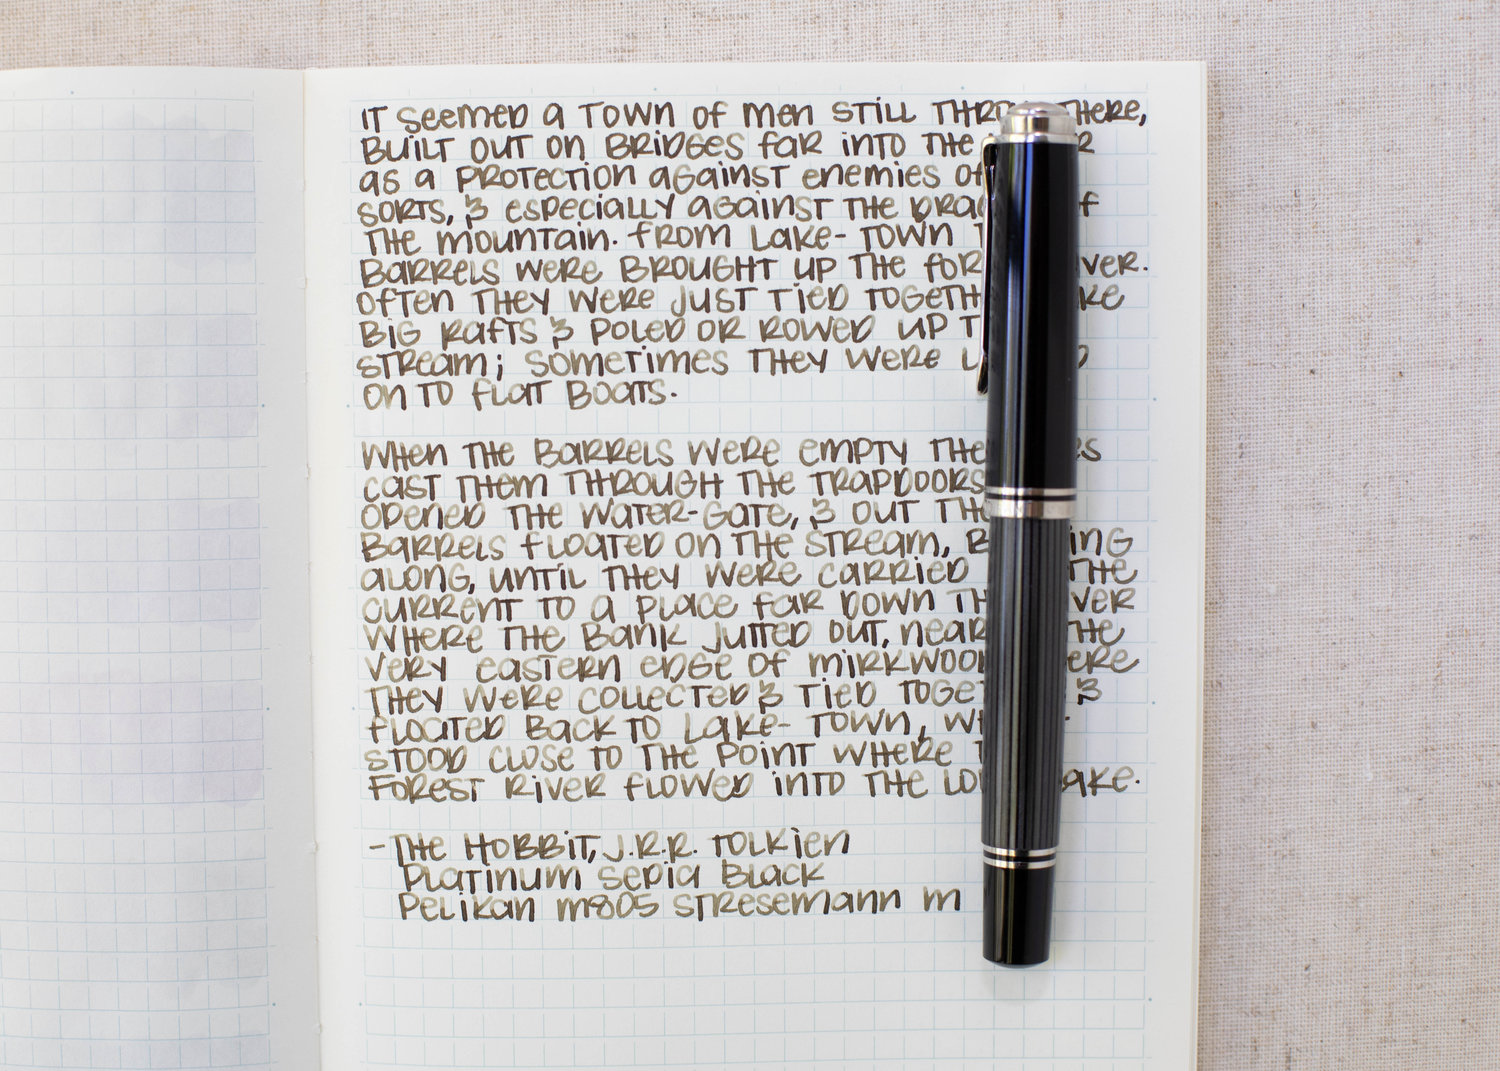 IT seemed a Town of men STILL THERE,
BUILT OUT ON BRIDGES far INTO THE
as a PROTECTION against enemies of
SORTS, & ESPECIALLY against THE
THE mountain. From Lake-Town
Barrels were BROUGHT UP THE
Often THEY were JUST TIED
Big rafts & Poled or Rowed up
stream; Sometimes THEY were
on to flat Boats.
When the Barrels were empty
cast them through the trapdoors
opened the water-gate, & out
Barrels floated on the stream,
along, until they were carried THE
current to a place far down
where the Bank jutted out, THE
very eastern edge of
they were collected & tied &
floated Back to Lake-Town,
stood close to the point where
Forest River flowed into the
-The Hobbit, J.R.R. Tolkien
Platinum Sepia Black
Pelikan m805 Stresemann m